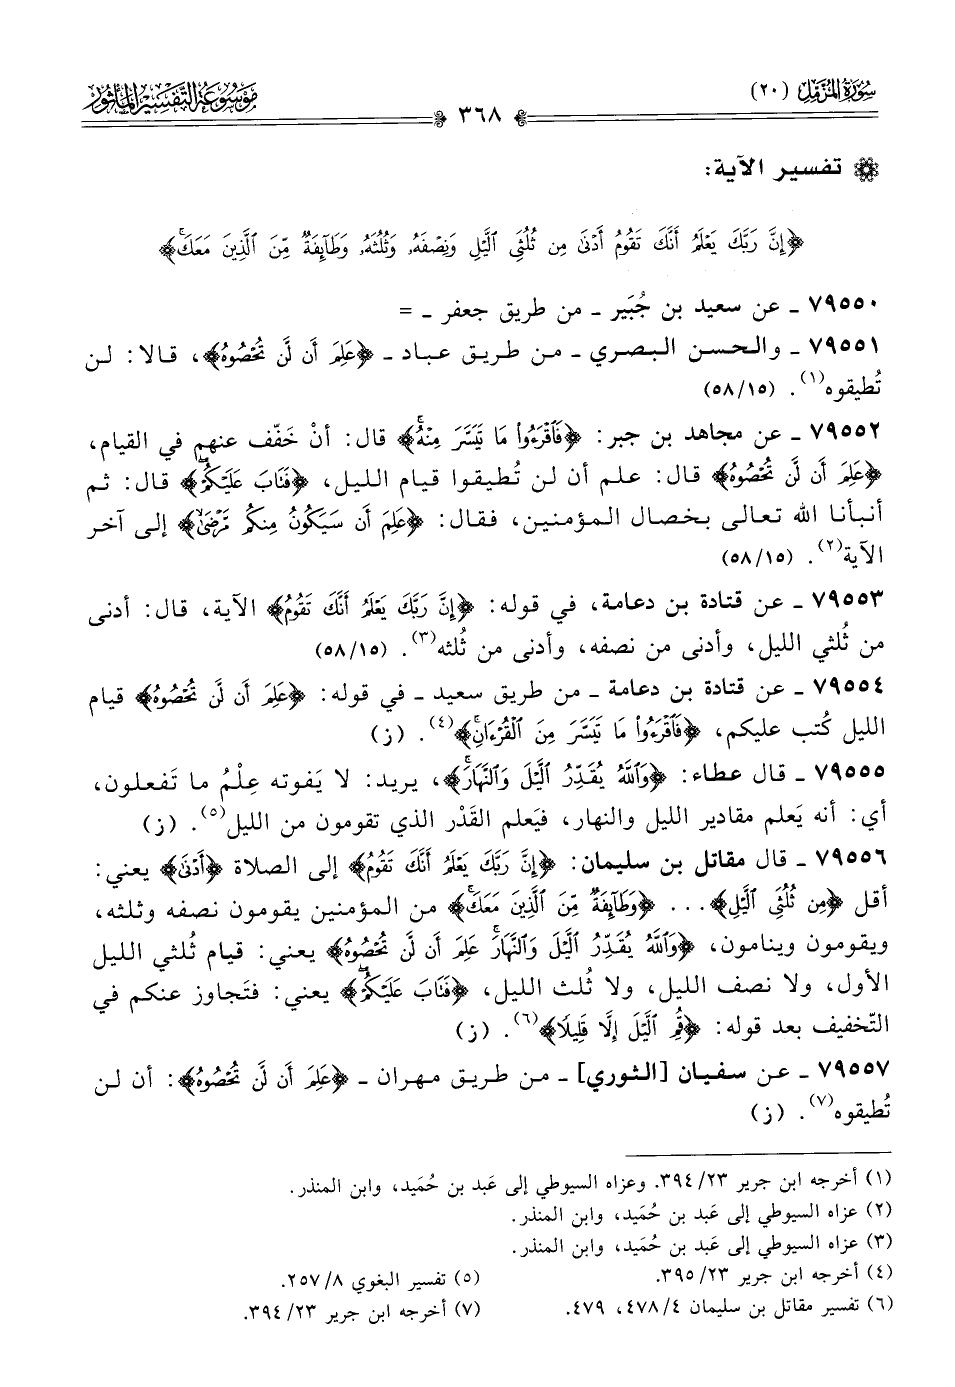 سورة المزمل (٢٠)
٣٦٨
موسوعة التفسير المأثور
تفسير الآية:
﴿إِنَّ رَبَّكَ يَعْلَمُ أَنَّكَ تَقُومُ أَدْنَىٰ مِن ثُلُثَيِ ٱلَّيْلِ وَنِصْفَهُۥ وَثُلُثَهُۥ وَطَآئِفَةٌ مِّنَ ٱلَّذِينَ مَعَكَۚ﴾
٧٩٥٥٠ ـ عن سعيد بن جُبَير ـ من طريق جعفر ـ =
٧٩٥٥١ ـ والحسن البصري ـ من طريق عباد ـ ﴿عَلِمَ أَن لَّن تُحْصُوهُ﴾، قالا: لن
تُطيقوه(١). (٥٨/١٥)
٧٩٥٥٢ ـ عن مجاهد بن جبر: ﴿فَٱقْرَءُوا۟ مَا تَيَسَّرَ مِنْهُۚ﴾ قال: أنْ خَفّف عنهم في القيام،
﴿عَلِمَ أَن لَّن تُحْصُوهُ﴾ قال: علم أن لن تُطيقوا قيام الليل، ﴿فَتَابَ عَلَيْكُمْۖ﴾ قال: ثم
أنبأنا الله تعالى بخصال المؤمنين، فقال: ﴿عَلِمَ أَن سَيَكُونُ مِنكُم مَّرْضَىٰۙ﴾ إلى آخر
الآية(٢). (٥٨/١٥)
٧٩٥٥٣ ـ عن قتادة بن دعامة، في قوله: ﴿إِنَّ رَبَّكَ يَعْلَمُ أَنَّكَ تَقُومُ﴾ الآية، قال: أدنى
من ثُلثي الليل، وأدنى من نصفه، وأدنى من ثُلثه(٣). (٥٨/١٥)
٧٩٥٥٤ ـ عن قتادة بن دعامة ـ من طريق سعيد ـ في قوله: ﴿عَلِمَ أَن لَّن تُحْصُوهُ﴾ قيام
الليل كُتب عليكم، ﴿فَٱقْرَءُوا۟ مَا تَيَسَّرَ مِنَ ٱلْقُرْءَانِۚ﴾(٤). (ز)
٧٩٥٥٥ ـ قال عطاء: ﴿وَٱللَّهُ يُقَدِّرُ ٱلَّيْلَ وَٱلنَّهَارَۚ﴾، يريد: لا يَفوته عِلْمُ ما تَفعلون،
أي: أنه يَعلم مقادير الليل والنهار، فيَعلم القَدْر الذي تقومون من الليل(٥). (ز)
٧٩٥٥٦ ـ قال مقاتل بن سليمان: ﴿إِنَّ رَبَّكَ يَعْلَمُ أَنَّكَ تَقُومُ﴾ إلى الصلاة ﴿أَدْنَىٰ﴾ يعني:
أقل ﴿مِن ثُلُثَيِ ٱلَّيْلِ﴾... ﴿وَطَآئِفَةٌ مِّنَ ٱلَّذِينَ مَعَكَۚ﴾ من المؤمنين يقومون نصفه وثلثه،
ويقومون وينامون، ﴿وَٱللَّهُ يُقَدِّرُ ٱلَّيْلَ وَٱلنَّهَارَۚ عَلِمَ أَن لَّن تُحْصُوهُ﴾ يعني: قيام ثُلثي الليل
الأول، ولا نصف الليل، ولا ثُلث الليل، ﴿فَتَابَ عَلَيْكُمْۖ﴾ يعني: فتَجاوز عنكم في
التّخفيف بعد قوله: ﴿قُمِ ٱلَّيْلَ إِلَّا قَلِيلًا﴾(٦). (ز)
٧٩٥٥٧ ـ عن سفيان [الثوري] ـ من طريق مهران ـ ﴿عَلِمَ أَن لَّن تُحْصُوهُ﴾: أن لن
تُطيقوه(٧). (ز)
(١) أخرجه ابن جرير ٣٩٤/٢٣. وعزاه السيوطي إلى عَبد بن حُمَيد، وابن المنذر.
(٢) عزاه السيوطي إلى عَبد بن حُمَيد، وابن المنذر.
(٣) عزاه السيوطي إلى عَبد بن حُمَيد، وابن المنذر.
(٤) أخرجه ابن جرير ٣٩٥/٢٣. (٥) تفسير البغوي ٢٥٧/٨.
(٦) تفسير مقاتل بن سليمان ٤٧٨/٤، ٤٧٩. (٧) أخرجه ابن جرير ٣٩٤/٢٣.